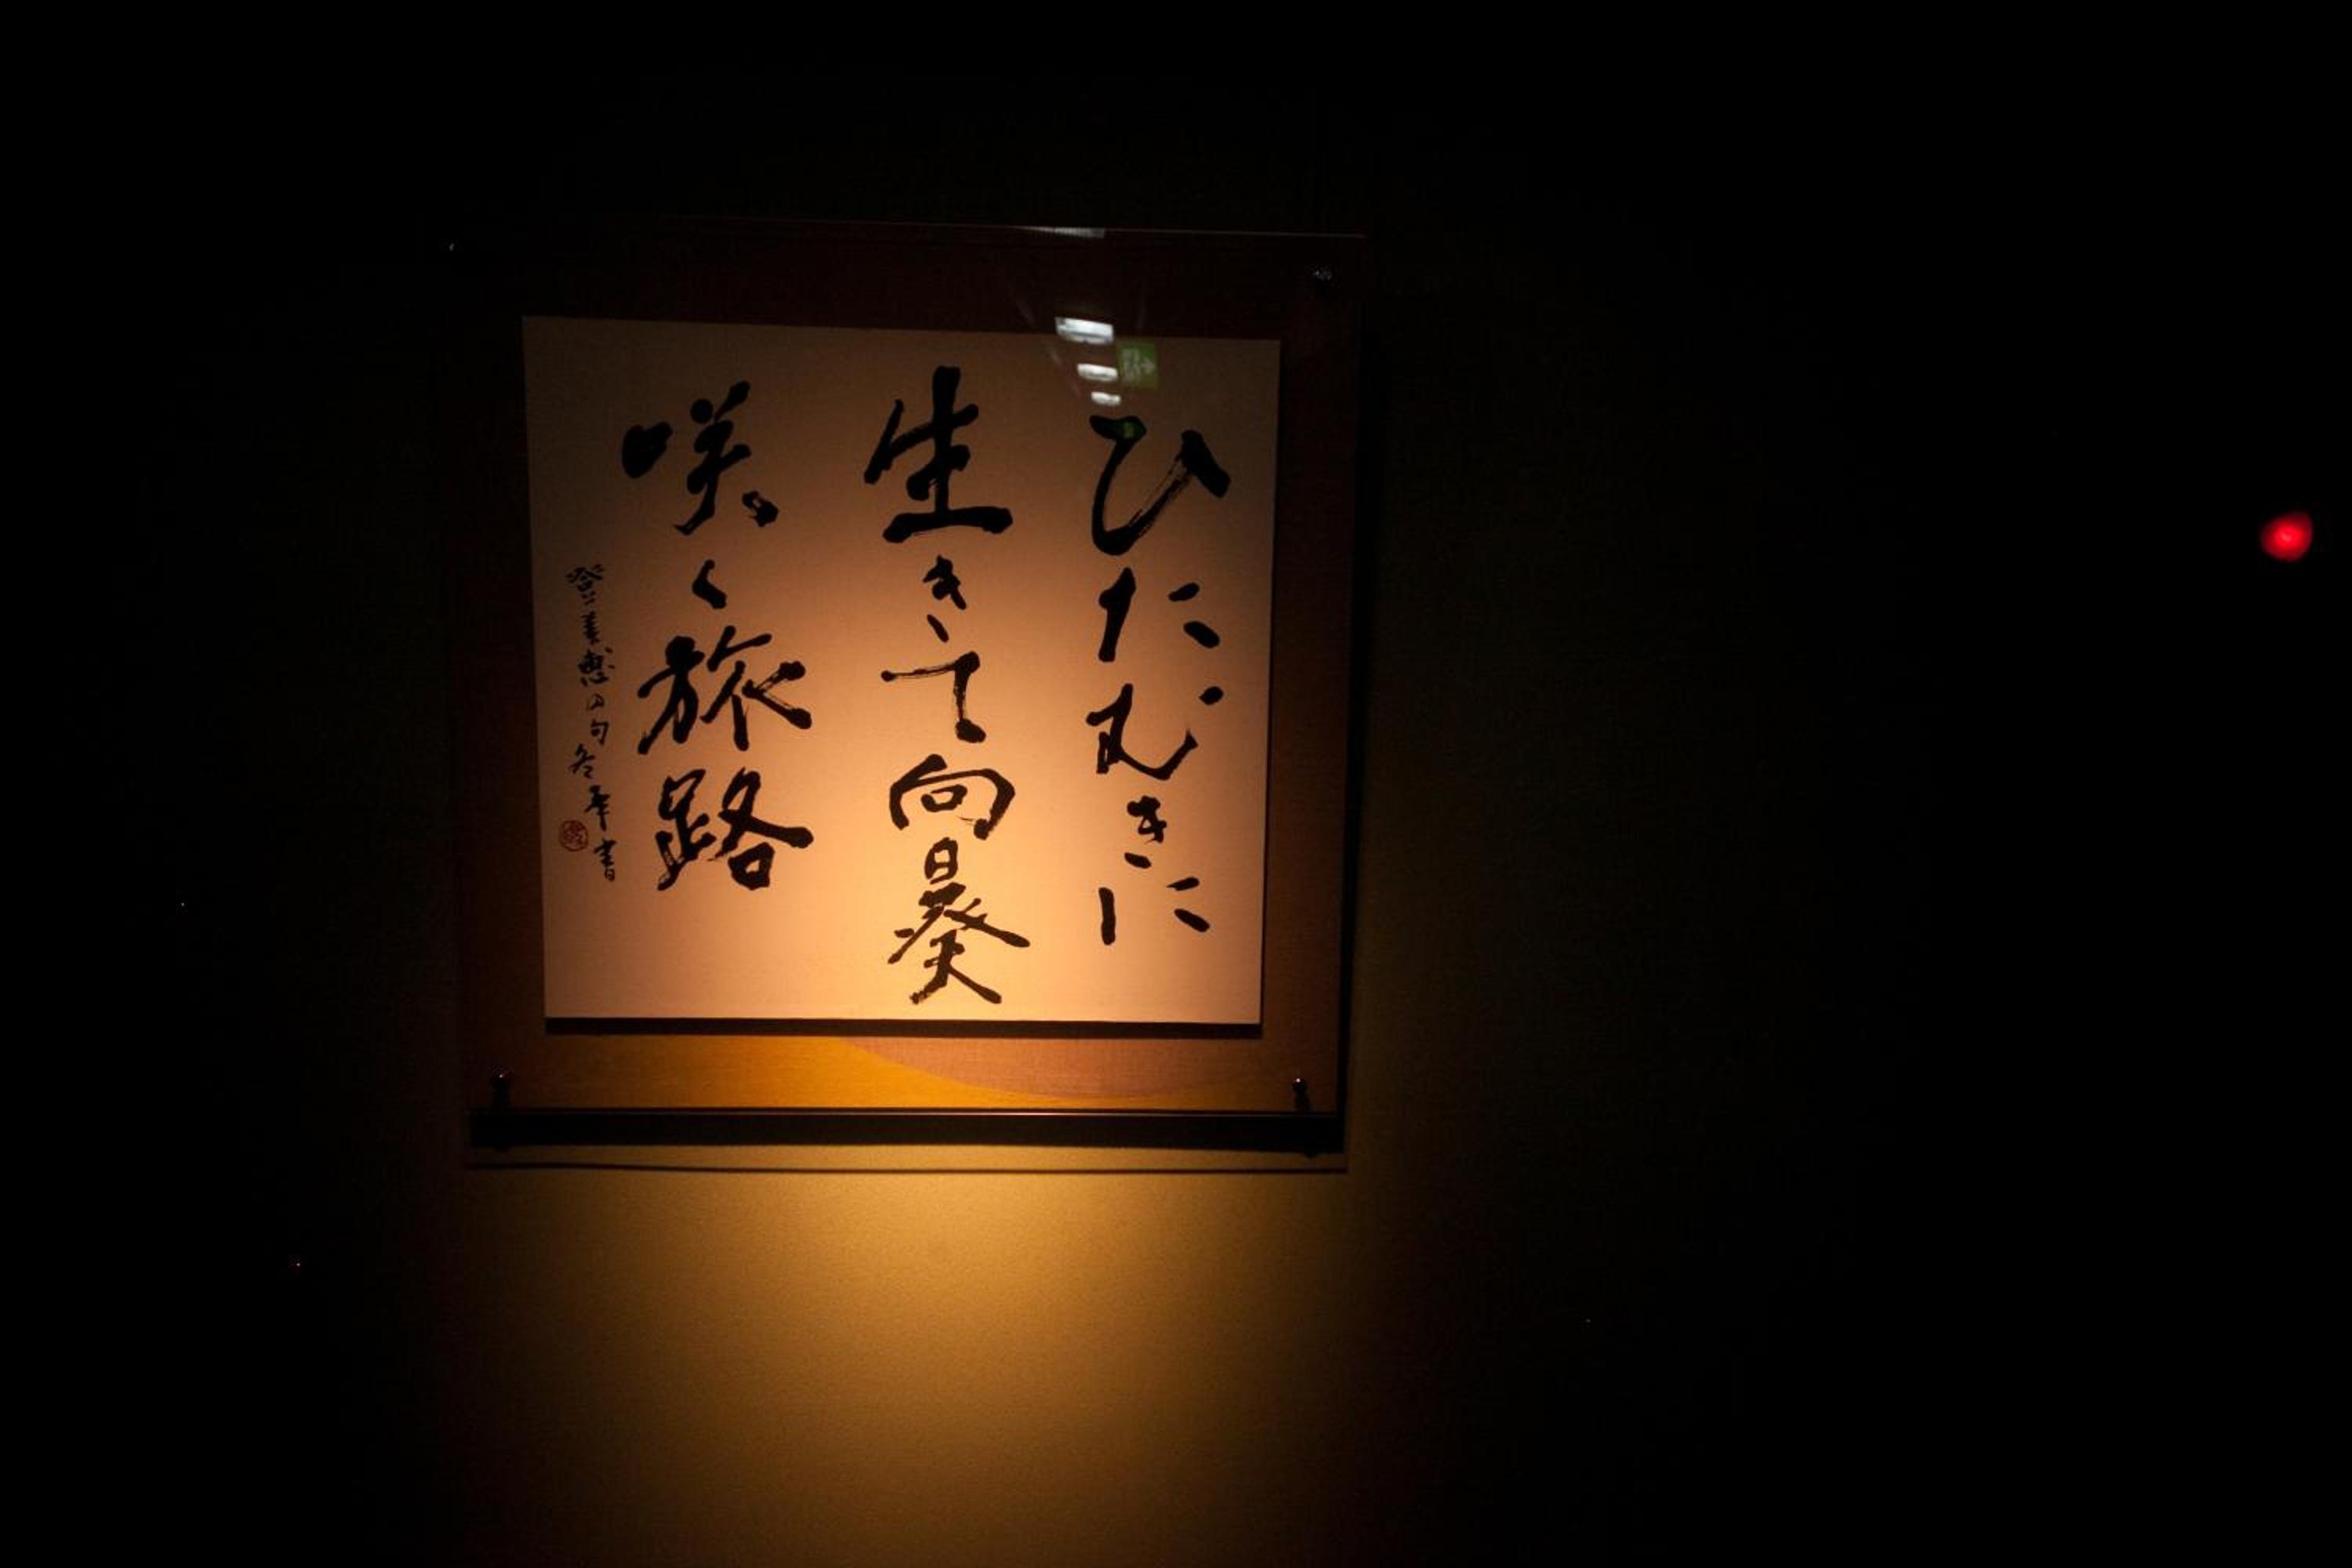 ひたむきに
生きて向日葵
咲く旅路
登美恵の句
書